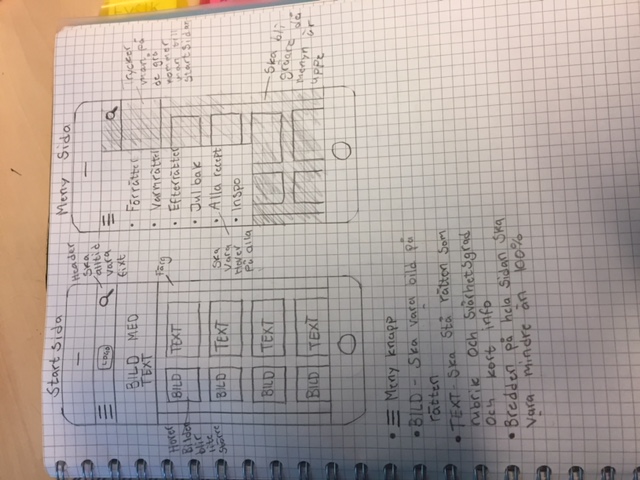 Start sida
Header
Ska
alltid
vara
fixt
LOGO
BILD MED
TEXT
Hover
Bilden
blir
lite
större
Färg
BILD TEXT
BILD TEXT
BILD TEXT
BILD TEXT
Ska
vara
Hover
på alla
Meny Sida
• Förrätter
• Varmrätter
• Efterätter
• Jul bak
• Alla recept
• Inspo
Trycker
man på
de grå
kommer
man till
startsidan
Ska bli
gråare då
menyn är
uppe
• Meny knapp
• BILD - Ska vara bild på
rätten
• TEXT - Ska stå rätten som
rubrik och Svårhetsgrad
och kort info
• Bredden på hela Sidan Ska
vara mindre än 100%